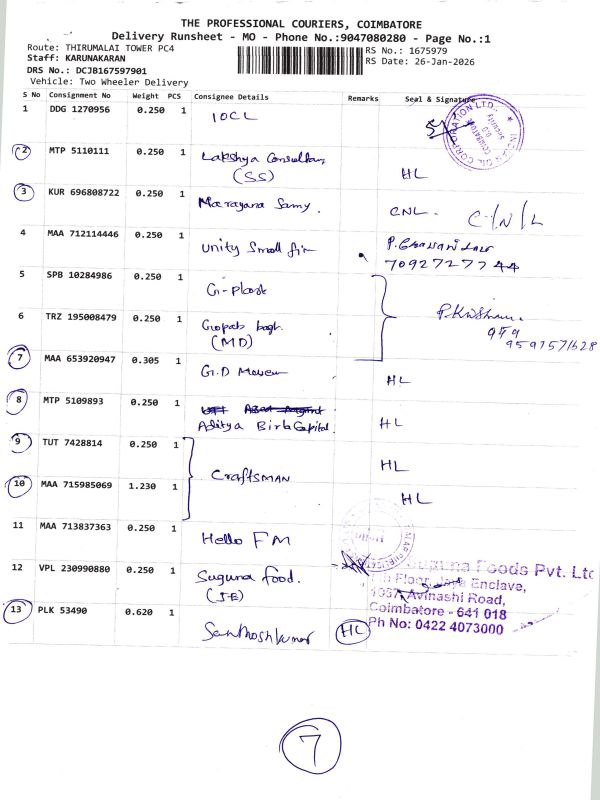 THE PROFESSIONAL COURIERS, COIMBATORE
Delivery Runsheet - MO - Phone No.:9047080280 - Page No.:1
Route: THIRUMALAI TOWER PC4
RS No.: 1675979
Staff: KARUNAKARAN
RS Date: 26-Jan-2026
DRS No.: DCJB167597901
Vehicle: Two Wheeler Delivery
S No Consignment No Weight PCS Consignee Details Remarks Seal & Signature
1 DDG 1270956 0.250 1 IOCL
2 MTP 5110111 0.250 1 Lakshya Consultan
(SS) HL
3 KUR 696808722 0.250 1 Narayana Samy. CNL. C/N/L
4 MAA 712114446 0.250 1 Unity Small fin
7092727744
5 SPB 10284986 0.250 1 G-plast
6 TRZ 195008479 0.250 1
(MD)
9591571628
7 MAA 653920947 0.305 1 G.D HL
8 MTP 5109893 0.250 1
Aditya Birla Capital. HL
9 TUT 7428814 0.250 1 HL
CraftsMAN
10 MAA 715985069 1.230 1 HL
11 MAA 713837363 0.250 1 Hello FM
12 VPL 230990880 0.250 1 Suguna food.
(SE)
Suguna Foods Pvt. Ltd
Floor, Jaya Enclave,
1057, Avinashi Road,
Coimbatore - 641 018
Ph No: 0422 4073000
13 PLK 53490 0.620 1 Santhoshkumar HL
7